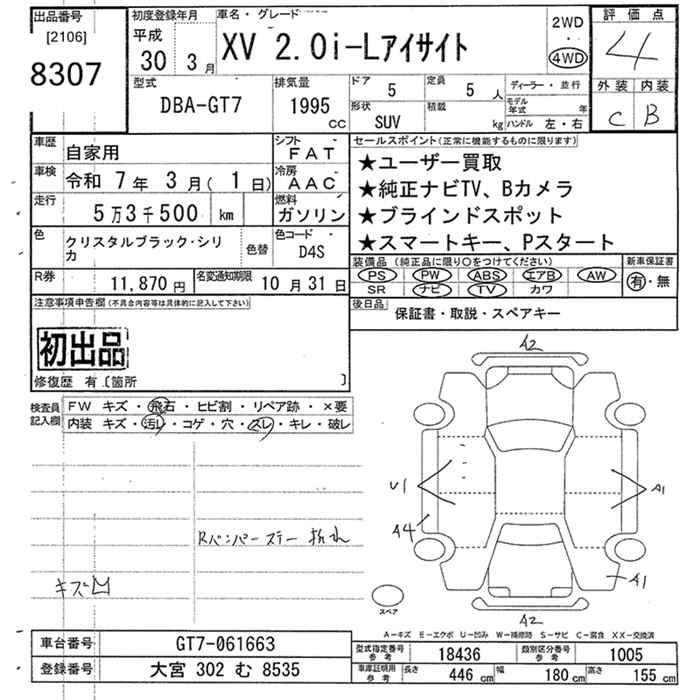 出品番号
[2106]
8307
初度登録年月
平成
30年 3月
車名・グレード
XV 2.0i-Lアイサイト
2WD
・
4WD
評価点
4
外装 内装
C B
型式
DBA-GT7
排気量
1995
CC
ドア
5
定員
5 人
形状
SUV
積載
kg
ディーラー・並行
モデル年式 年
ハンドル 左・右
車歴 自家用
シフト FAT
車検 令和 7年 3月( 1日)
冷房 AAC
走行 5万3千500 km
燃料 ガソリン
色 クリスタルブラック・シリカ
色替
色コード D4S
R券 11,870円
名変通知期限 10月31日
セールスポイント(正常に機能するものに限ります)
★ユーザー買取
★純正ナビTV、Bカメラ
★ブラインドスポット
★スマートキー、Pスタート
装備品 (純正品に限り○をつけてください)
PS PW ABS エアB AW
SR ナビ TV カワ
新車保証書
有・無
後日品
保証書・取説・スペアキー
注意事項申告欄(不具合内容等は具体的に記入して下さい)
初出品
修復歴 有〔箇所 〕
検査員
記入欄
FW キズ・飛石・ヒビ割・リペア跡・×要
内装 キズ・汚レ・コゲ・穴・スレ・キレ・破レ
Rバンパーステー折れ
キズ凹
A2
U1
A4
A1
A1
A2
スペア
A-キズ E-エクボ U-凹み W-補修跡 S-サビ C-腐食 XX-交換済
車台番号 GT7-061663
登録番号 大宮 302 む 8535
型式指定番号 参考 18436
類別区分番号 参考 1005
車庫証明用 参考 長さ 446 cm 幅 180 cm 高さ 155 cm